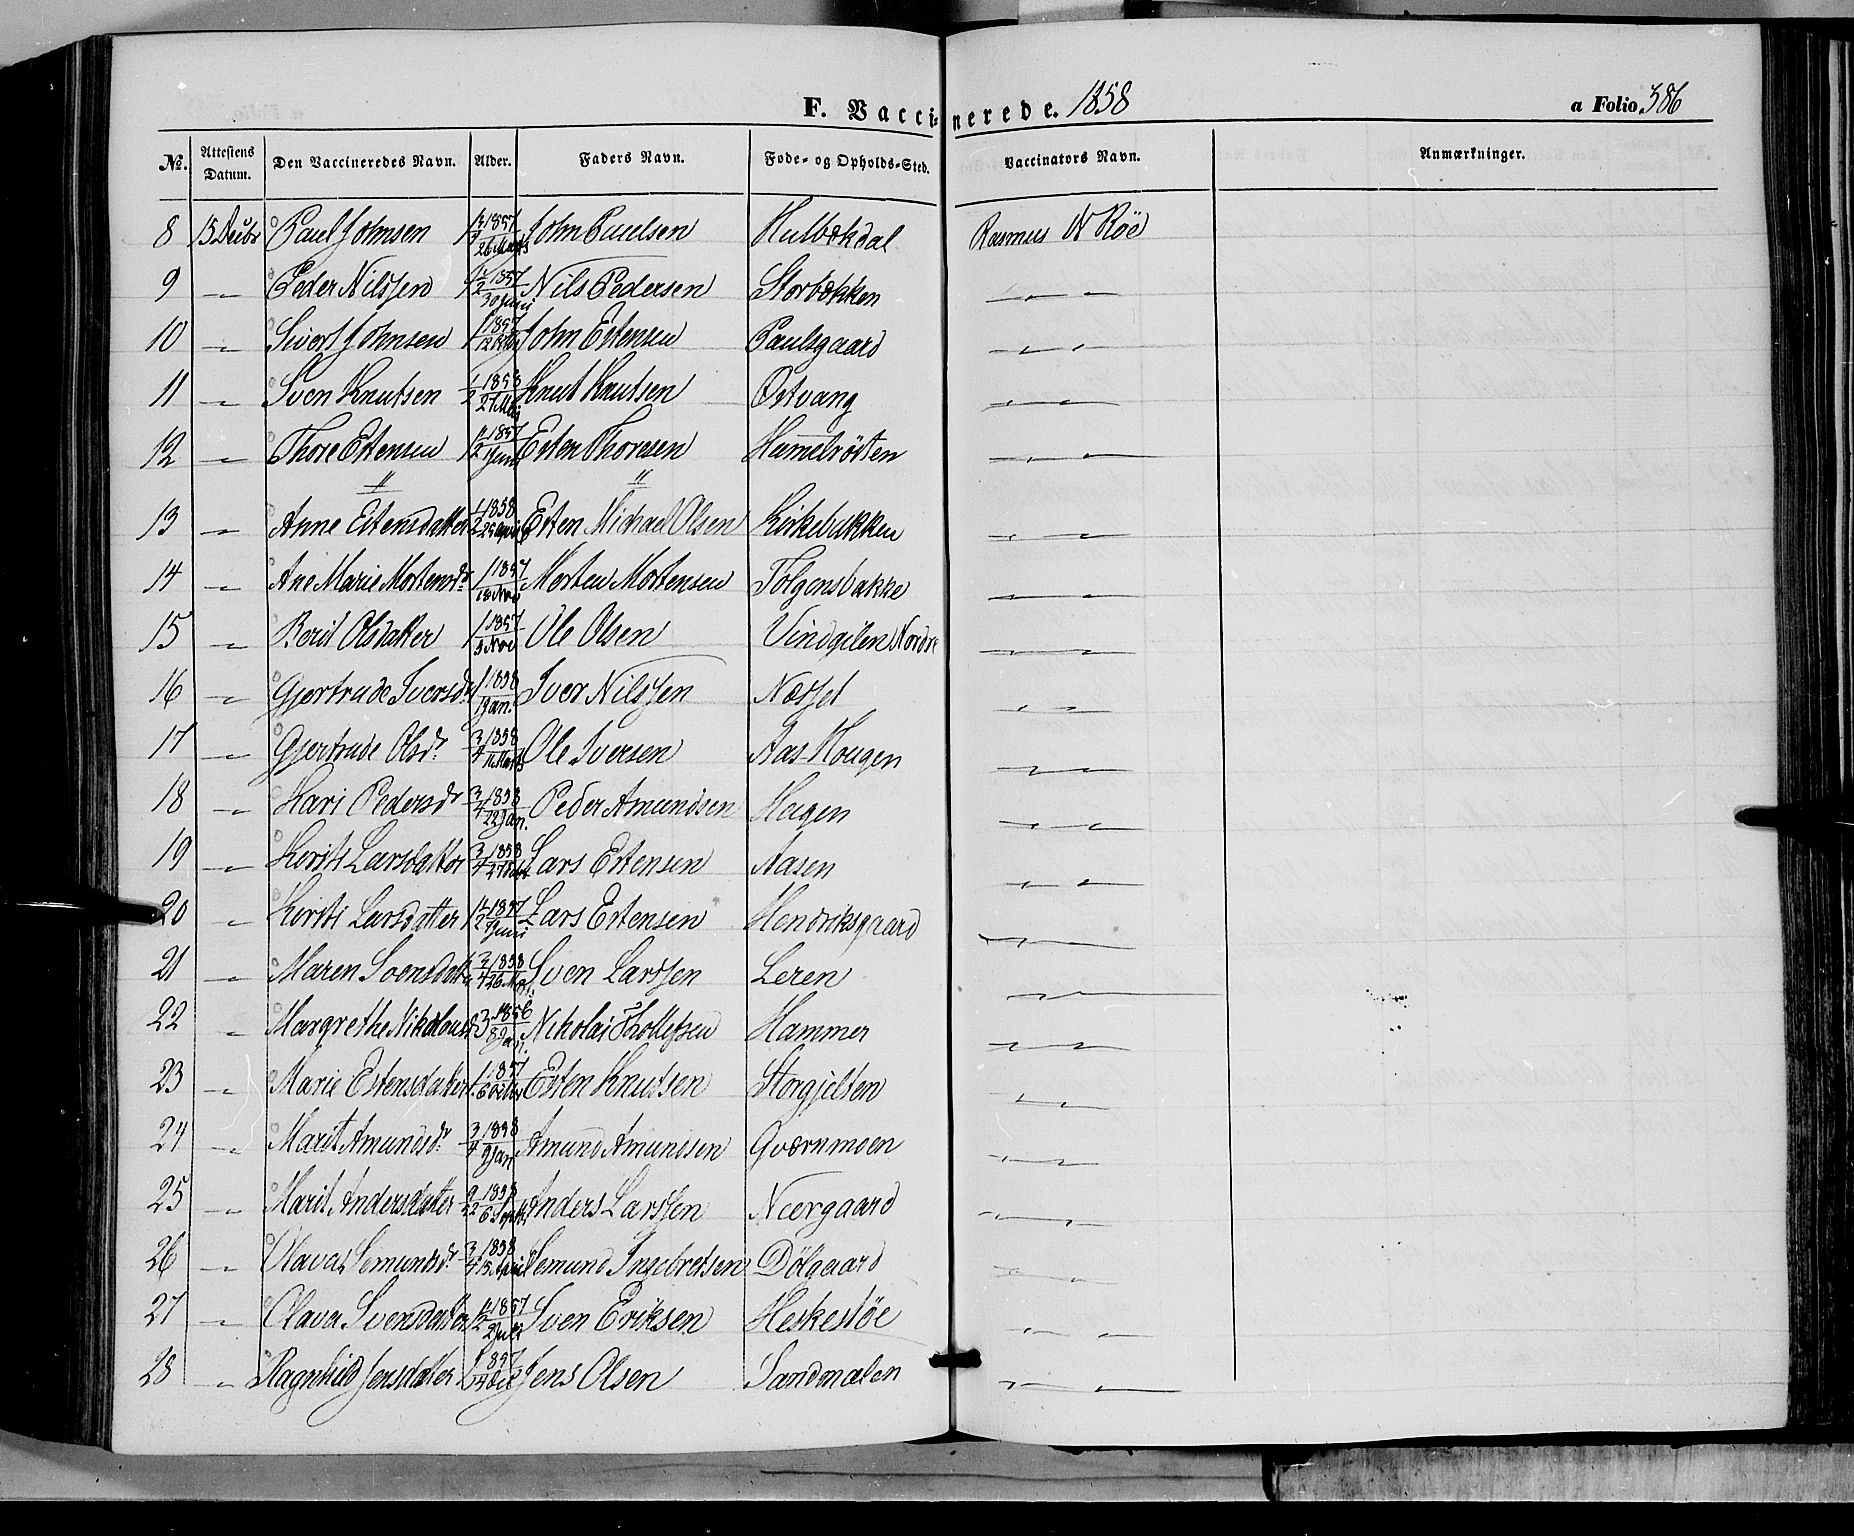 F. Vaccinerede. 1858
a Folio 386
No. Attestens Datum. Den Vaccineredes Navn. Alder. Faders Navn. Føde- og Opholds-Sted. Vaccinators Navn. Anmærkninger.
8 15 Decbr Paul Johnsen 1 1857 26 Marts John Paulsen Hulbækdal Rasmus N Röe
9 -„- Peder Nilssen 1 1/2 1857 30 Juni Nils Pedersen Storbækken -„-
10 -„- Sivert Johnsen 1 1857 John Estensen Paulsgaard -„-
11 -„- Sven Knutsen 1/2 1858 Knut Knutsen Østvang -„-
12 -„- Thore Estensen 1 1/2 1857 Juni Esten Thoresen Hummelvösten -„-
„ „
13 -„- Anne Estensdatter 1/2 1858 Esten Michael Olsen Kirkebakken -„-
14 -„- Ane Marie Mortensdr 1 1857 18 Nov Morten Mortensen Tolgensbakke -„-
15 -„- Berit Olsdatter 1 1857 Nov Ole Olsen Vindgilen Nordre -„-
16 -„- Gjertrude Iversdr 1 1858 Jan. Iver Nilssen Næsset -„-
17 -„- Gjertrude Olsdr 3/4 1858 11 Marts Ole Iversen Aas-Hougen -„-
18 -„- Kari Pedersdr 3/4 1858 22 Jan. Peder Amundsen Haugen -„-
19 -„- Kersti Larsdatter 3/4 1858 Lars Estensen Aasen -„-
20 -„- Kersti Larsdatter 1 1/2 1857 Juni Lars Estensen Hendriksgaard -„-
21 -„- Maren Svensdatter 3/4 1858 Sven Larssen Leren -„-
22 -„- Margrethe Nikolausd. 3 1856 8 Jan. Nikolai Thollefsen Hammer -„-
23 -„- Marie Estensdatter 1 1857 Esten Knutsen Storgjelten -„-
24 -„- Marit Amundsdr 3/4 1858 9 Jan Amund Amundsen Qværnmoen -„-
25 -„- Marit Andersdatter 1858 6 Septbr Anders Larssen Neergaard -„-
26 -„- Olava Semundsdr 3/4 1858 15 April Semund Ingebretsen Dölgaard -„-
27 -„- Olava Svensdatter 1 1/2 1857 2 Juli Sven Eriksen Heskestöe -„-
28 -„- Ragnhild Jensdatter 1 1857 Jens Olsen Sandmælen -„-